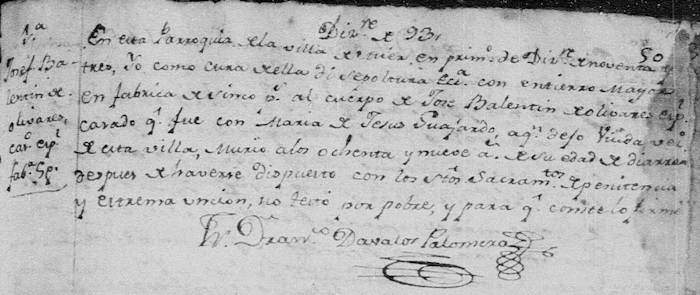 Div.re de 93,,
50
1.a
Josef Ba-
lentin de
olivares,
cas.o esp.l
fab.a 5 p.s
En esta Parroquia de la villa de en prim.o de Div.re de noventa y
tres, Yo como cura de ella di sepoltura ecc.a con entierro Mayor
en fabrica de sinco p.s al cuerpo de Jose Balentin de olivares esp.l
casado q.e fue con Maria de Jesus Guajardo, a q.n dejo Viuda ve.s
de esta villa, Murio a los ochenta y nueve a.s de su edad de diarrea
despues de haverse dispuesto con los S.tos Sacram.tos de penitencia
y extrema uncion, no testó por pobre, y para q.e conste lo firmé
Fran.co Davalos Palomera